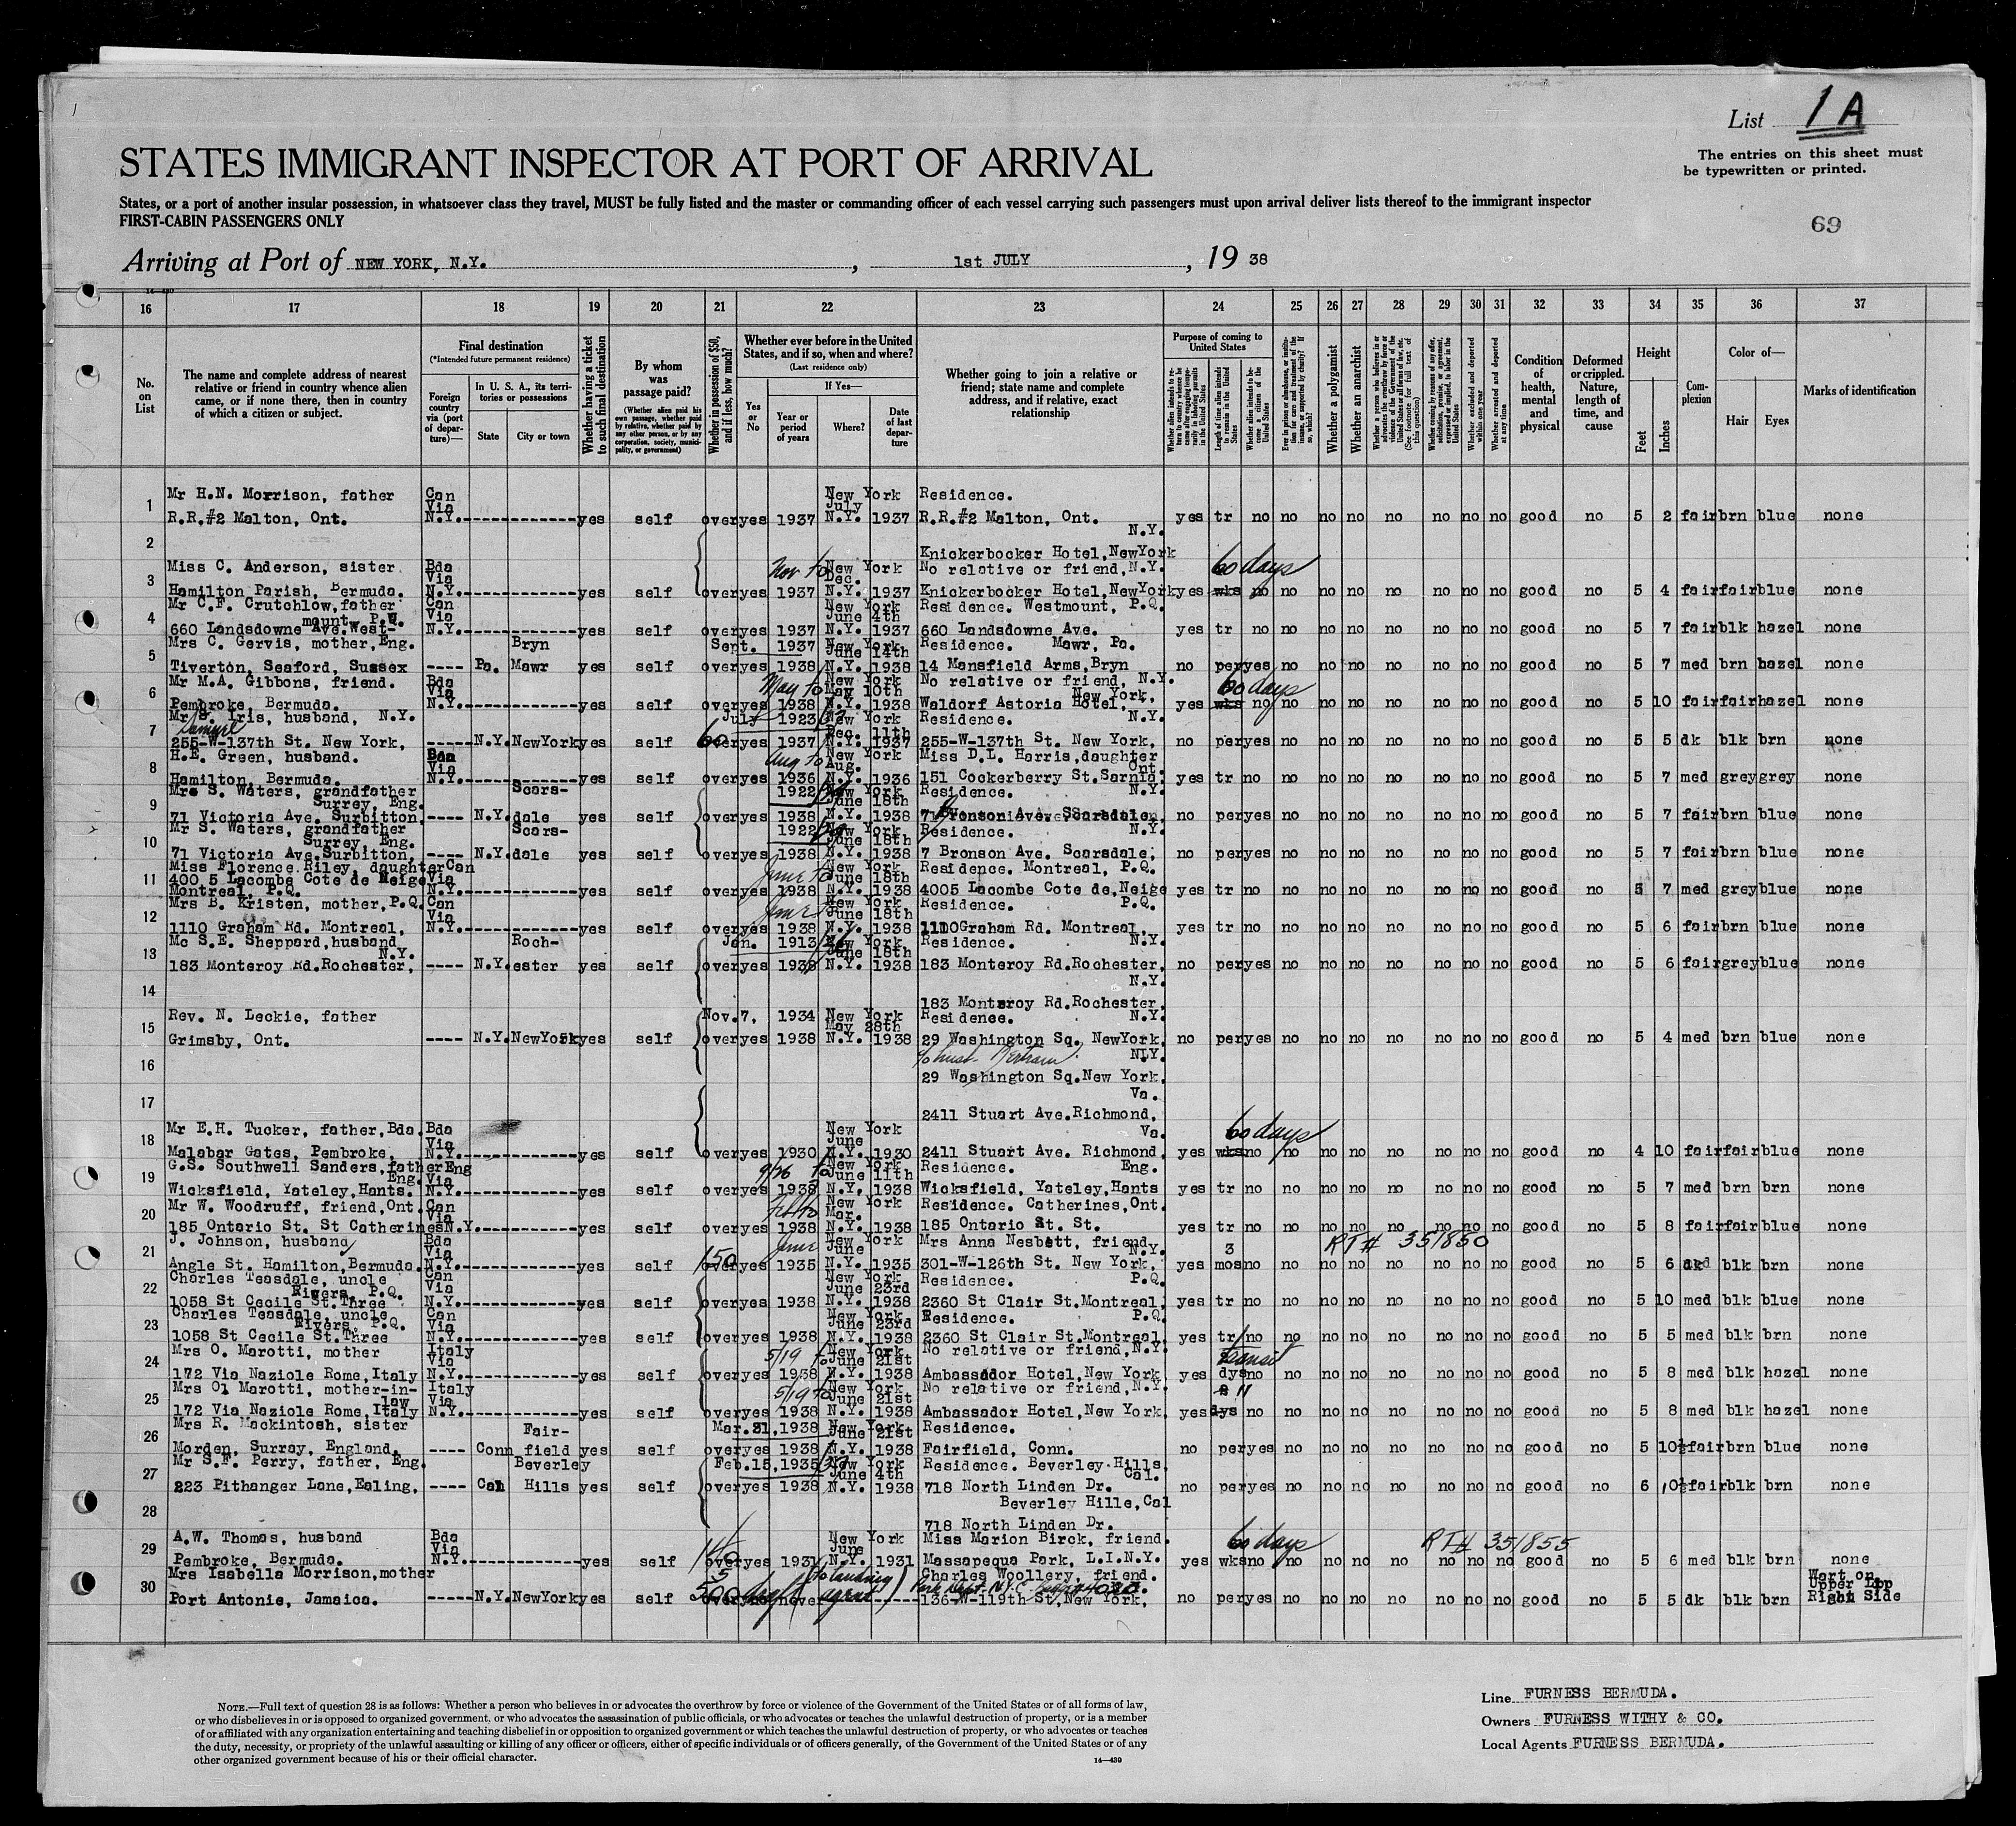 List 1A
The entries on this sheet must
be typewritten or printed.
STATES IMMIGRANT INSPECTOR AT PORT OF ARRIVAL
States, or a port of another insular possession, in whatsoever class they travel, MUST be fully listed and the master or commanding officer of each vessel carrying such passengers must upon arrival deliver lists thereof to the immigrant inspector
FIRST-CABIN PASSENGERS ONLY
69
Arriving at Port of NEW YORK, N.Y. , 1st JULY , 19 38
14-430
16 17 18 19 20 21 22 23 24 25 26 27 28 29 30 31 32 33 34 35 36 37
No. on List
The name and complete address of nearest relative or friend in country whence alien came, or if none there, then in country of which a citizen or subject.
Final destination
(*Intended future permanent residence)
Foreign country via (port of departure)—
In U. S. A., its territories or possessions
State City or town
Whether having a ticket to such final destination
By whom was passage paid?
(Whether alien paid his own passage, whether paid by relative, whether paid by any other person, or by any corporation, society, municipality, or government)
Whether in possession of $50, and if less, how much?
Whether ever before in the United States, and if so, when and where?
(Last residence only)
Yes or No
If Yes—
Year or period of years Where? Date of last departure
Whether going to join a relative or friend; state name and complete address, and if relative, exact relationship
Purpose of coming to United States
Length of time alien intends to remain in the United States
Whether alien intends to become a citizen of the United States
Whether a polygamist
Whether an anarchist
Whether excluded and deported within one year
Whether arrested and deported at any time
Condition of health, mental and physical
Deformed or crippled. Nature, length of time, and cause
Height
Feet Inches
Complexion
Color of—
Hair Eyes
Marks of identification
1 Mr H.N. Morrison, father Can Via New York July Residence.
R.R.#2 Malton, Ont. N.Y. yes self over yes 1937 N.Y. 1937 R.R.#2 Malton, Ont. yes tr no no no no no no no no good no 5 2 fair brn blue none
2 N.Y.
Knickerbocker Hotel,NewYork
3 Miss C. Anderson, sister Bda Via Nov to New York Dec. No relative or friend,N.Y. 60 days
Hamilton Parish, Bermuda. N.Y. yes self over yes 1937 N.Y. 1937 Knickerbocker Hotel,NewYork yes wks no no no no no no no no good no 5 4 fair fair blue none
4 Mr C.F. Crutchlow,father Can Via New York June 4th Residence. Westmount, P.Q.
mount, P.Q.
660 Landsdowne Ave.West- N.Y. yes self over yes 1937 N.Y. 1937 660 Landsdowne Ave. yes tr no no no no no no no no good no 5 7 fair blk hazel none
5 Mrs C. Gervis, mother,Eng. Bryn Sept. 1937 New York June 14th Residence. Mawr, Pa.
Tiverton, Seaford, Sussex ---- Pa. Mawr yes self over yes 1938 N.Y. 1938 14 Mansfield Arms,Bryn no per yes no no no no no no no good no 5 7 med brn hazel none
6 Mr M.A. Gibbons, friend. Bda Via May to New York May 10th No relative or friend, N.Y. 60 days
New York,
Pembroke, Bermuda. N.Y. yes self over yes 1938 N.Y. 1938 Waldorf Astoria Hotel, yes wks no no no no no no no no good no 5 10 fair fair hazel none
7 Mr S. Iris, husband, N.Y. July 1923 New York Dec. 11th Residence. N.Y.
Samuel
255-W-137th St. New York, ----- N.Y. NewYork yes self 60 over yes 1937 N.Y. 1937 255-W-137th St. New York, no per yes no no no no no no no good no 5 5 dk blk brn none
8 H.E. Green, husband. Bda Via Aug to New York Aug. Miss D.L. Harris,daughter
Ont.
Hamilton, Bermuda. N.Y. yes self over yes 1936 N.Y. 1936 151 Cockerberry St.Sarnia, yes tr no no no no no no no no good no 5 7 med grey grey none
9 Mrs S. Waters, grandfather Scars- 1922 New York June 18th Residence. N.Y.
Surrey, Eng.
71 Victoria Ave. Surbitton, ---- N.Y. dale yes self over yes 1938 N.Y. 1938 7 Bronson Ave. Scarsdale, no per yes no no no no no no no good no 5 7 fair brn blue none
10 Mr S. Waters, grandfather Scars- 1922 New York June 18th Residence. N.Y.
Surrey, Eng.
71 Victoria Ave.Surbitton, ---- N.Y. dale yes self over yes 1938 N.Y. 1938 7 Bronson Ave. Scarsdale, no per yes no no no no no no no good no 5 7 fair brn blue none
11 Miss Florence Riley, daughter Can June to New York June 18th Residence. Montreal, P.Q.
400 5 Lacombe Cote de Neige Via
Montreal, P.Q. N.Y. yes self over yes 1938 N.Y. 1938 4005 Lacombe Cote de,Neige yes tr no no no no no no no no good no 5 7 med grey blue none
12 Mrs B. Kristen, mother,P.Q. Can Via June to New York June 18th Residence. P.Q.
1110 Graham Rd. Montreal, N.Y. yes self over yes 1938 N.Y. 1938 1110 Graham Rd. Montreal, yes tr no no no no no no no no good no 5 6 fair brn blue none
13 Mc S.E. Sheppard,husband Roch- Jan. 1913 New York June 18th Residence. N.Y.
N.Y.
183 Monteroy Rd.Rochester, ---- N.Y. ester yes self over yes 1938 N.Y. 1938 183 Monteroy Rd.Rochester, no per yes no no no no no no no good no 5 6 fair grey blue none
14 N.Y.
183 Monteroy Rd.Rochester,
15 Rev. N. Leckie, father Nov.7, 1934 New York May 28th Residence. N.Y.
Grimsby, Ont. ---- N.Y. NewYork yes self over yes 1938 N.Y. 1938 29 Washington Sq. NewYork, no per yes no no no no no no no good no 5 4 med brn blue none
16 N.Y.
29 Washington Sq.New York,
17 Va.
2411 Stuart Ave.Richmond,
18 Mr E.H. Tucker, father,Bda. Bda Via New York June Va. 60 days
Malabar Gates, Pembroke, N.Y. yes self over yes 1930 N.Y. 1930 2411 Stuart Ave. Richmond, yes wks no no no no no no no no good no 4 10 fair fair blue none
19 G.S. Southwell Sanders,father Eng 9/26 to New York June 11th Residence. Eng.
Eng. Via
Wicksfield, Yateley,Hants. N.Y. yes self over yes 1938 N.Y. 1938 Wicksfield, Yateley,Hants yes tr no no no no no no no no good no 5 7 med brn brn none
20 Mr W. Woodruff, friend,Ont. Can Via Feb to New York Mar. Residence. Catherines,Ont.
185 Ontario St. St Catherines N.Y. yes self over yes 1938 N.Y. 1938 185 Ontario St. St. yes tr no no no no no no no no good no 5 8 fair fair blue none
21 J. Johnson, husband Bda Via June New York June Mrs Anna Nesbett, friend N.Y. 3 RT# 351850
Angle St. Hamilton,Bermuda. N.Y. yes self 150 over yes 1935 N.Y. 1935 301-W-126th St. New York, yes mos no no no no no no no no good no 5 6 dk blk brn none
22 Charles Teasdale, uncle Can Via New York June 23rd Residence. P.Q.
Rivers, P.Q.
1058 St Cecile St.Three N.Y. yes self over yes 1938 N.Y. 1938 2360 St Clair St.Montreal, yes tr no no no no no no no no good no 5 10 med blk blue none
23 Charles Teasdale, uncle Can Via New York June 23rd Residence. P.Q.
Rivers, P.Q.
1058 St Cecile St.Three N.Y. yes self over yes 1938 N.Y. 1938 2360 St Clair St.Montreal, yes tr no no no no no no no no good no 5 5 med blk brn none
24 Mrs O. Marotti, mother Italy Via 5/19 to New York June 21st No relative or friend,N.Y. transit
172 Via Naziole Rome,Italy N.Y. yes self over yes 1938 N.Y. 1938 Ambassador Hotel,New York yes dys no no no no no no no no good no 5 8 med blk hazel none
25 Mrs Ol Marotti, mother-in- Italy 5/19 to New York June 21st No relative or friend,N.Y. 8 "
law Via
172 Via Naziole Rome,Italy N.Y. yes self over yes 1938 N.Y. 1938 Ambassador Hotel,New York, yes dys no no no no no no no no good no 5 8 med blk hazel none
26 Mrs R. Mackintosh, sister Fair- Mar.21,1938 New York June 21st Residence.
Morden, Surray, England, ---- Conn field yes self over yes 1938 N.Y. 1938 Fairfield, Conn. no per yes no no no no no no no good no 5 10½ fair brn blue none
27 Mr S.F. Perry, father, Eng. Beverley Feb.15,1935 New York June 4th Residence. Beverley Hills, Cal.
223 Pithanger Lane,Ealing, ---- Cal Hills yes self over yes 1938 N.Y. 1938 718 North Linden Dr. no per yes no no no no no no no good no 6 0½ fair blk brn none
28 Beverley Hille,Cal
718 North Linden Dr.
29 A.W. Thomas, husband Bda Via New York June Miss Marion Birck, friend. 60 days RT# 351855
Pembroke, Bermuda. N.Y. yes self over yes 1931 N.Y. 1931 Massapequa Park, L.I.N.Y. yes wks no no no no no no no no good no 5 6 med blk brn none
30 Mrs Isabella Morrison,mother to landing Charles Woollery, friend. Wart on
Upper Lip
Port Antonie, Jamaica. ----- N.Y. NewYork yes self 500 over never agent 136-W-119th St,New York, no per yes no no no no no no no good no 5 5 dk blk brn Right Side
NOTE.—Full text of question 28 is as follows: Whether a person who believes in or advocates the overthrow by force or violence of the Government of the United States or of all forms of law,
or who disbelieves in or is opposed to organized government, or who advocates the assassination of public officials, or who advocates or teaches the unlawful destruction of property, or is a member
of or affiliated with any organization entertaining and teaching disbelief in or opposition to organized government or which teaches the unlawful destruction of property, or who advocates or teaches
the duty, necessity, or propriety of the unlawful assaulting or killing of any officer or officers, either of specific individuals or of officers generally, of the Government of the United States or of any
other organized government because of his or their official character.
14—430
Line FURNESS BERMUDA.
Owners FURNESS WITHY & CO.
Local Agents FURNESS BERMUDA.